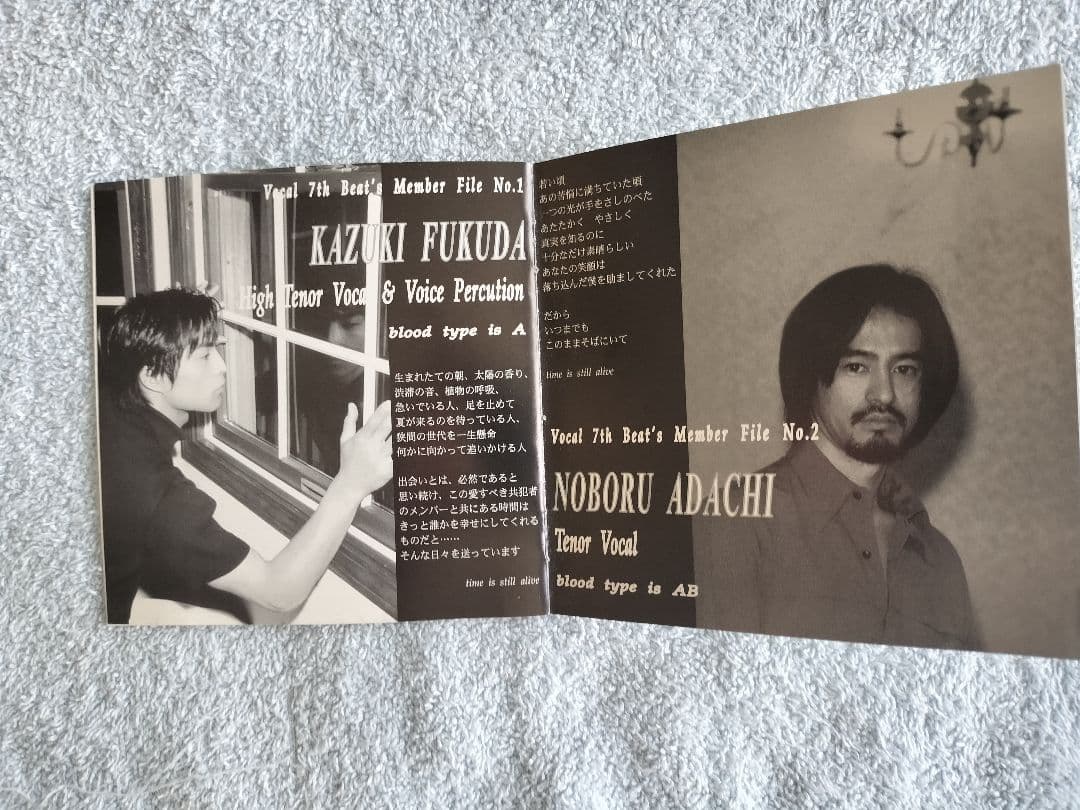 Vocal 7th Beat's Member File No.1
KAZUKI FUKUDA
High Tenor Vocal & Voice Percution
blood type is A
生まれたての朝、太陽の香り、
渋滞の音、植物の呼吸、
急いでいる人、足を止めて
夏が来るのを待っている人、
狭間の世代を一生懸命
何かに向かって追いかける人
出会いとは、必然であると
思い続け、この愛すべき共犯者
のメンバーと共にある時間は
きっと誰かを幸せにしてくれる
ものだと……
そんな日々を送っています
time is still alive
若い頃
あの苦悩に満ちていた頃
一つの光が手をさしのべた
あたたかく やさしく
真実を知るのに
十分なだけ素晴らしい
あなたの笑顔は
落ち込んだ僕を励ましてくれた
だから
いつまでも
このままそばにいて
time is still alive
Vocal 7th Beat's Member File No.2
NOBORU ADACHI
Tenor Vocal
blood type is AB